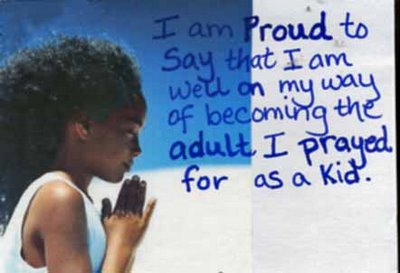 I am Proud to
Say that I am
well on my way
of becoming the
adult I prayed
for as a Kid.